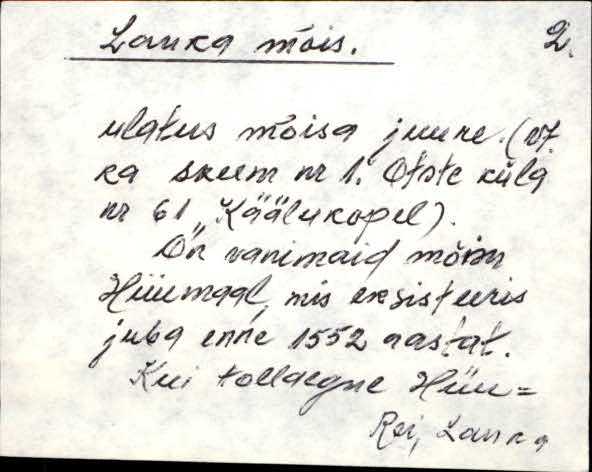 Lauka mõis. 2.
ulatus mõisa juure. (vt.
ka skeem nr 1. Otste küla
nr 61 Käälukopel).
On vanimaid mõisu
Hiiumaal, mis eksisteeris
juba enne 1552 aastat.
Kui tolleaegne Hiiu=
Rei, Lauka